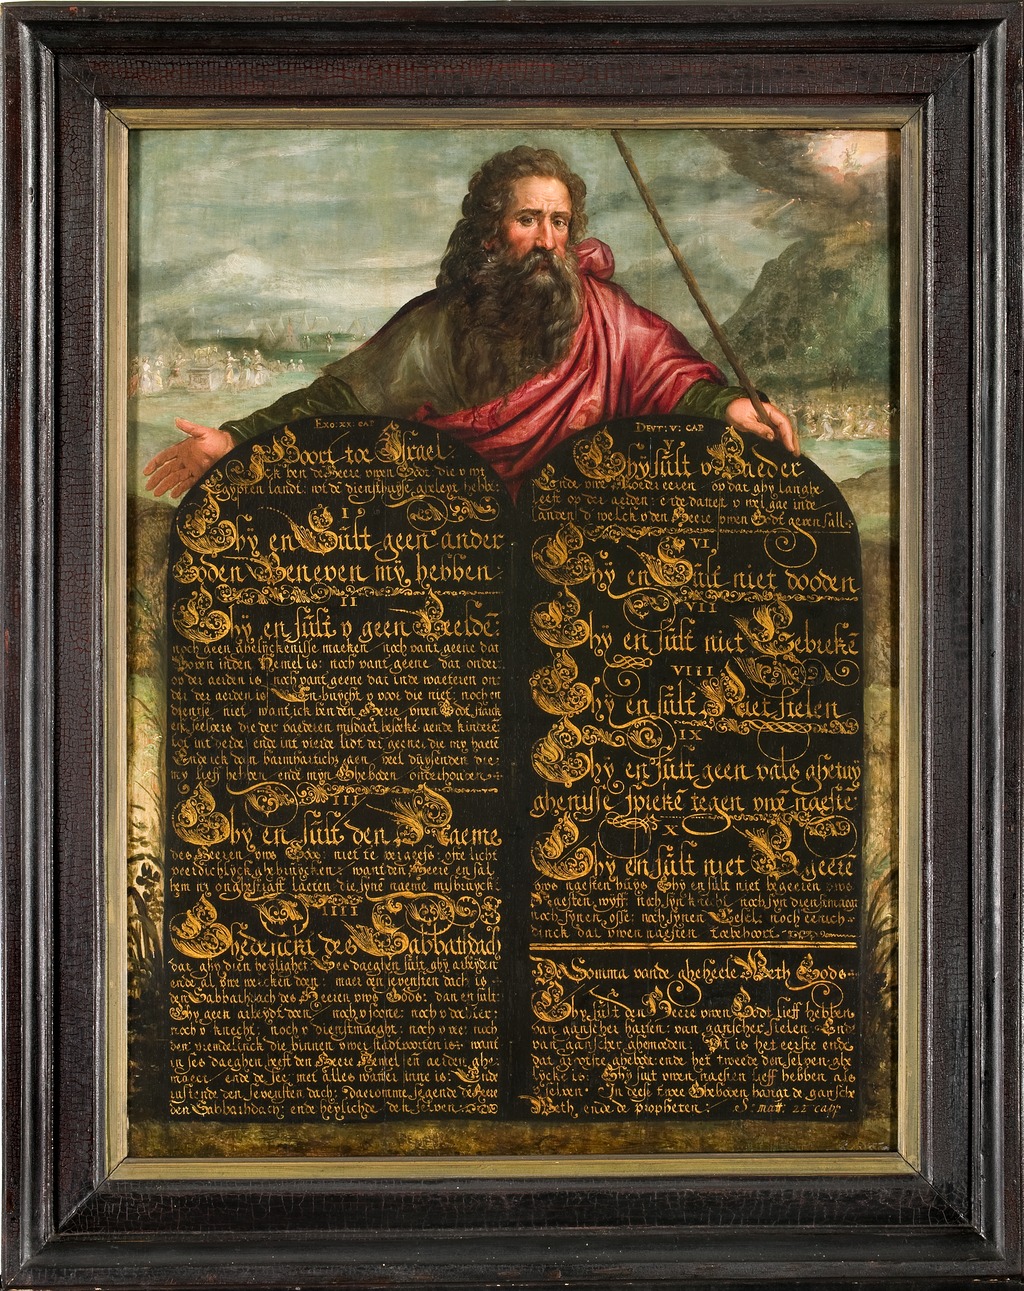 Exo: xx: cap
Hoort toe Israel:
Ick ben de Heere uwen Godt die u wt
Egypten landt: wt de diensthuyse geleyt hebbe:
I
Ghÿ en Sult geen ander
Goden Beneven mÿ hebben:
II
Ghÿ en sult v geen Beelde
noch geen ghelÿckenisse maeken: noch vant geene dat
Boven inden Hemel is: noch vant geene dat onder
op der aerden is noch vant geene dat inde waeteren on:
der der aerden is En buycht v voor die niet: noch en
dientse niet want ick ben den Heere uwen Godt
die der vaederen misdaet aende kindere
tot int derde ende int vierde lidt der geener die my haeten
Ende ick doen barmharticheyt aen veel duysenden die
my lieff hebben ende mÿn Gheboden onderhouden
III
Ghÿ en sult den Naeme
des Heeren uws Godts niet te vergeefs ofte licht
veerdichlÿck ghebruycken: want den Heere en sal
hem niet onghestraft laeten die sÿne naeme misbruyckt
IIII
Ghedenckt des Sabbathdach
dat ghy dien heylighet: Ses daeghen sult ghy arbeyden
ende al uwe wercken doen: maer den sevensten dach is
den Sabbathdach des Heeren uws Gods: dan en sult
Ghy geen arbeydt doen: noch v soone: noch v dochter:
noch v knecht: noch v dienstmaeght: noch v vee: noch
den vremdelinck die binnen uwer stadtpoorten is: want
in ses daeghen heeft den Heere Hemel en aerden ghe:
maect ende de see met alles wat er inne is: Ende
ruste den sevensten dach: daeromme segende de Heere
den Sabbathdach: ende heylichde den selven
Devt: v: cap
V
Ghÿ sult v Vaeder
Ende uwe Moeder eeren op dat ghy langhe
leeft op der aerden: ende dattet v wel gae inde
landen d welck v den Heere uwen Godt geven sall
VI
Ghÿ en Sult niet dooden
VII
Ghÿ en sult niet Eebreken
VIII
Ghÿ en sult Niet stelen
IX
Ghÿ en sult geen vals ghetuÿ
ghenisse spreke tegen uwe naeste:
X
Ghÿ en sult niet Begeere
uws naesten huys Ghy en sult niet begeeren uws
Naesten wÿff: noch sÿn knecht noch sÿn dienstmaeget
noch sÿnen osse: noch sÿnen Eesel: noch eenich
dinck dat uwen naesten toebehoort
De Somma vande gheheele Weth Gods
Ghy sult den Heere uwen Godt lieff hebben
van ganscher harten: van ganscher sielen: Ende
van ganscher ghemoeden: Dit is het eerste ende
dat grootste ghebodt: ende het tweede den selven ghe
lÿcke is: Ghy sult uwen naesten lieff hebben als
v selven: In deese twee Gheboden hangt de gansche
Weth ende de propheten: S: matt: 22 cap: